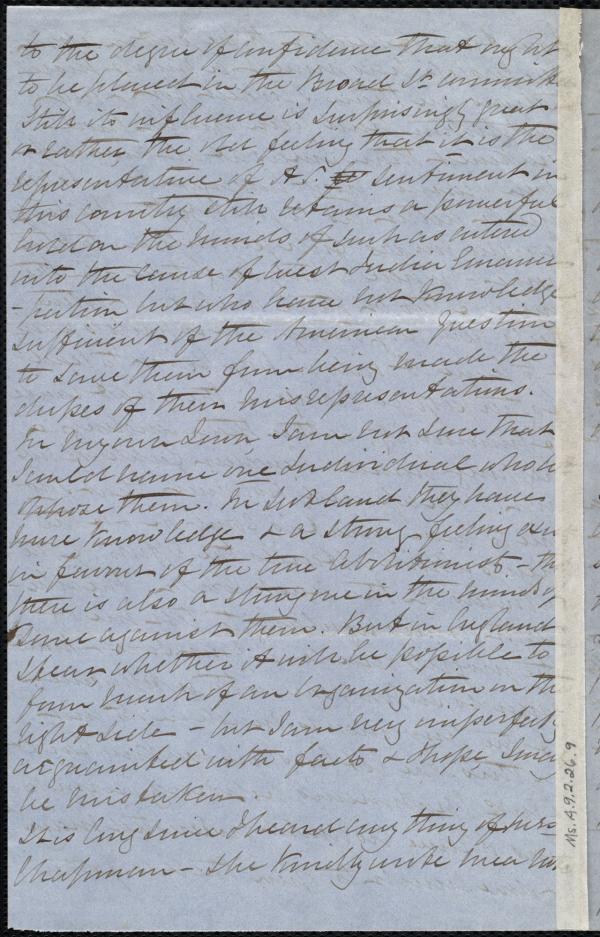 to the degree of confidence that ought
to be placed in the Broad St committ
Still its influence is surprisingly great
or rather the old feeling that it is the
representative of A. S. sentiment in
this country still retains a powerful
hold on the minds of such as entered
into the cause of West India Emanci
-pation but who have not knowledge
sufficient of the American Question
to save them from being made the
dupes of their misrepresentations.
In my own Town I am not sure that
I could name one individual who
oppose them. In Scotland they have
more knowledge & a strong feeling
in favour of the true Abolitionists - 
there is also a strong one in the minds of
some against them. But in England
I fear whether it will be possible to
form much of an organization on the
right side - but I am very imperfectly
acquainted with facts & I hope I may
be mistaken.
It is long since I heard any thing of Mrs
Chapman - She kindly wrote me a
Ms. A. 9. 2. 26. 9